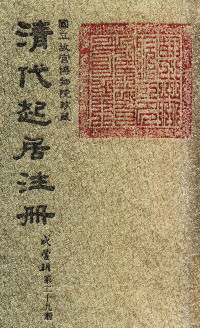 國立故宮博物院珍藏
清代起居注冊
咸豐朝第二十九冊